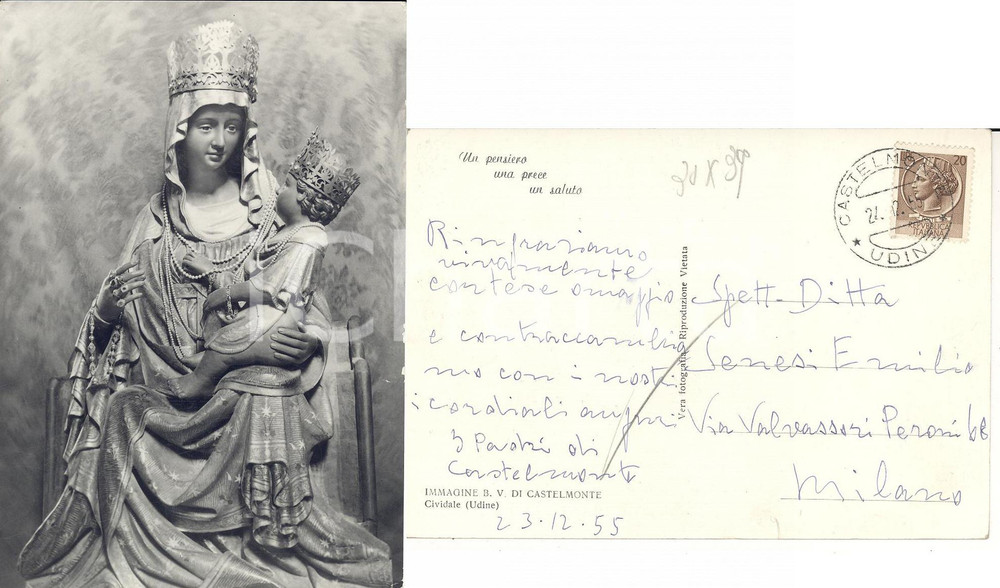 Un pensiero
una prece
un saluto
CASTELMONTE
UDINE
20
REPVBBLICA
ITALIANA
Ringraziamo
vivamente
cortese omaggio
e contraccambia
mo con i nostri
cordiali auguri
I Padri di
Castelmonte
IMMAGINE B. V. DI CASTELMONTE
Cividale (Udine)
23.12.55
Vera fotografia - Riproduzione Vietata
Spett. Ditta
Senesi Emilio
Via Valvassori Peroni 68
Milano